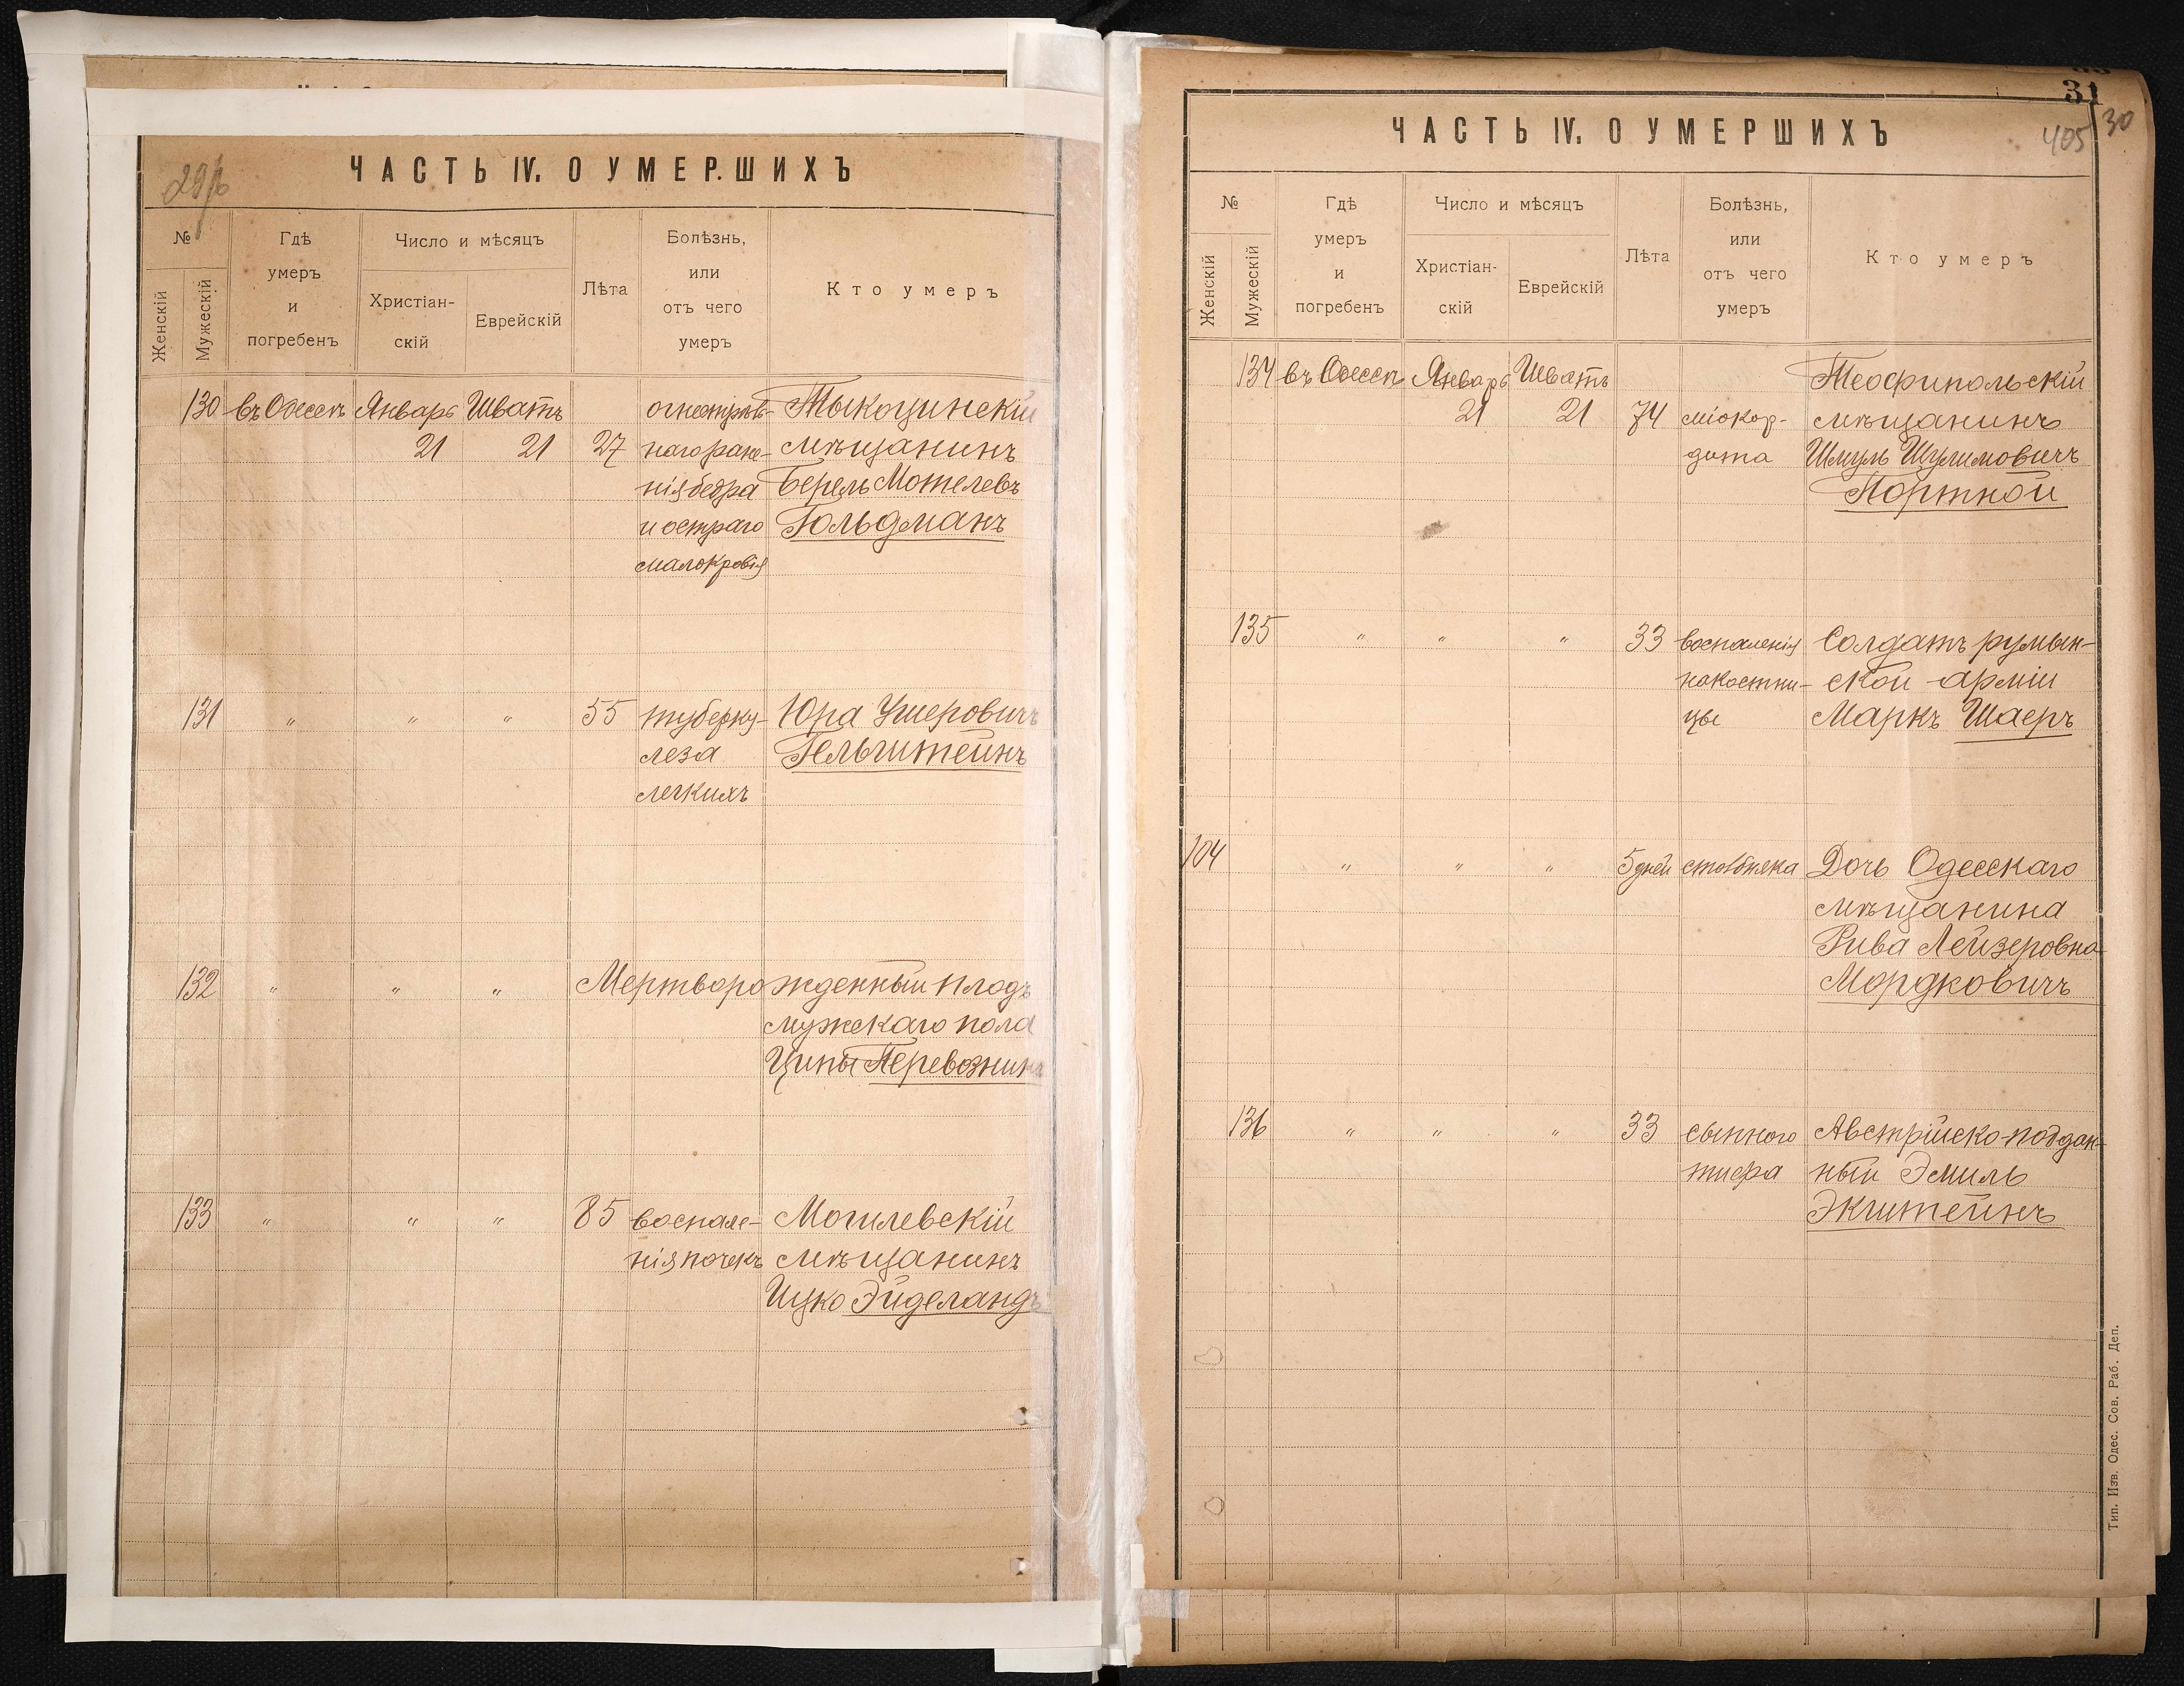 ЧАСТЬ IV. О УМЕРШИХЪ
№
Женскій
Мужескій
Гдѣ
умеръ
и
погребенъ
Число и мѣсяцъ
Христіан-
скій
Еврейскій
Лѣта
Болѣзнь,
или
отъ чего
умеръ
Кто умеръ
130 въ Одессѣ Январь Шватъ огнестрѣль- Тыкоцинскій
21 21 27 наго ране- мѣщанинъ
нія бедра Берель Мотелевъ
и остраго Гольдманъ
малокровія
131 " " " 55 туберку- Юра Ушеровичъ
леза Гельштейнъ
легкихъ
132 " " " Мертворожденный плодъ
мужскаго пола
Ципы
133 " " " 85 воспале- Могилевскій
нія почекъ мѣщанинъ
Ицко Эйделандъ
31
30
405
ЧАСТЬ IV. О УМЕРШИХЪ
№
Женскій
Мужескій
Гдѣ
умеръ
и
погребенъ
Число и мѣсяцъ
Христіан-
скій
Еврейскій
Лѣта
Болѣзнь,
или
отъ чего
умеръ
Кто умеръ
134 въ Одессѣ Январь Шватъ Теофипольскій
21 21 74 міокар- мѣщанинъ
дита Шмуль Шулимовичъ
Портной
135 " " " 33 воспаленія Солдатъ румын-
накостни- ской арміи
цы Маркъ Шаеръ
104 " " " 5 дней столбняка Дочь Одесскаго
мѣщанина
Рива Лейзеровна
Мордковичъ
136 " " " 33 сыпного Австрійско-поддан-
тифа ный Эмиль
Экштейнъ
Тип. Изв. Одес. Сов. Раб. Деп.